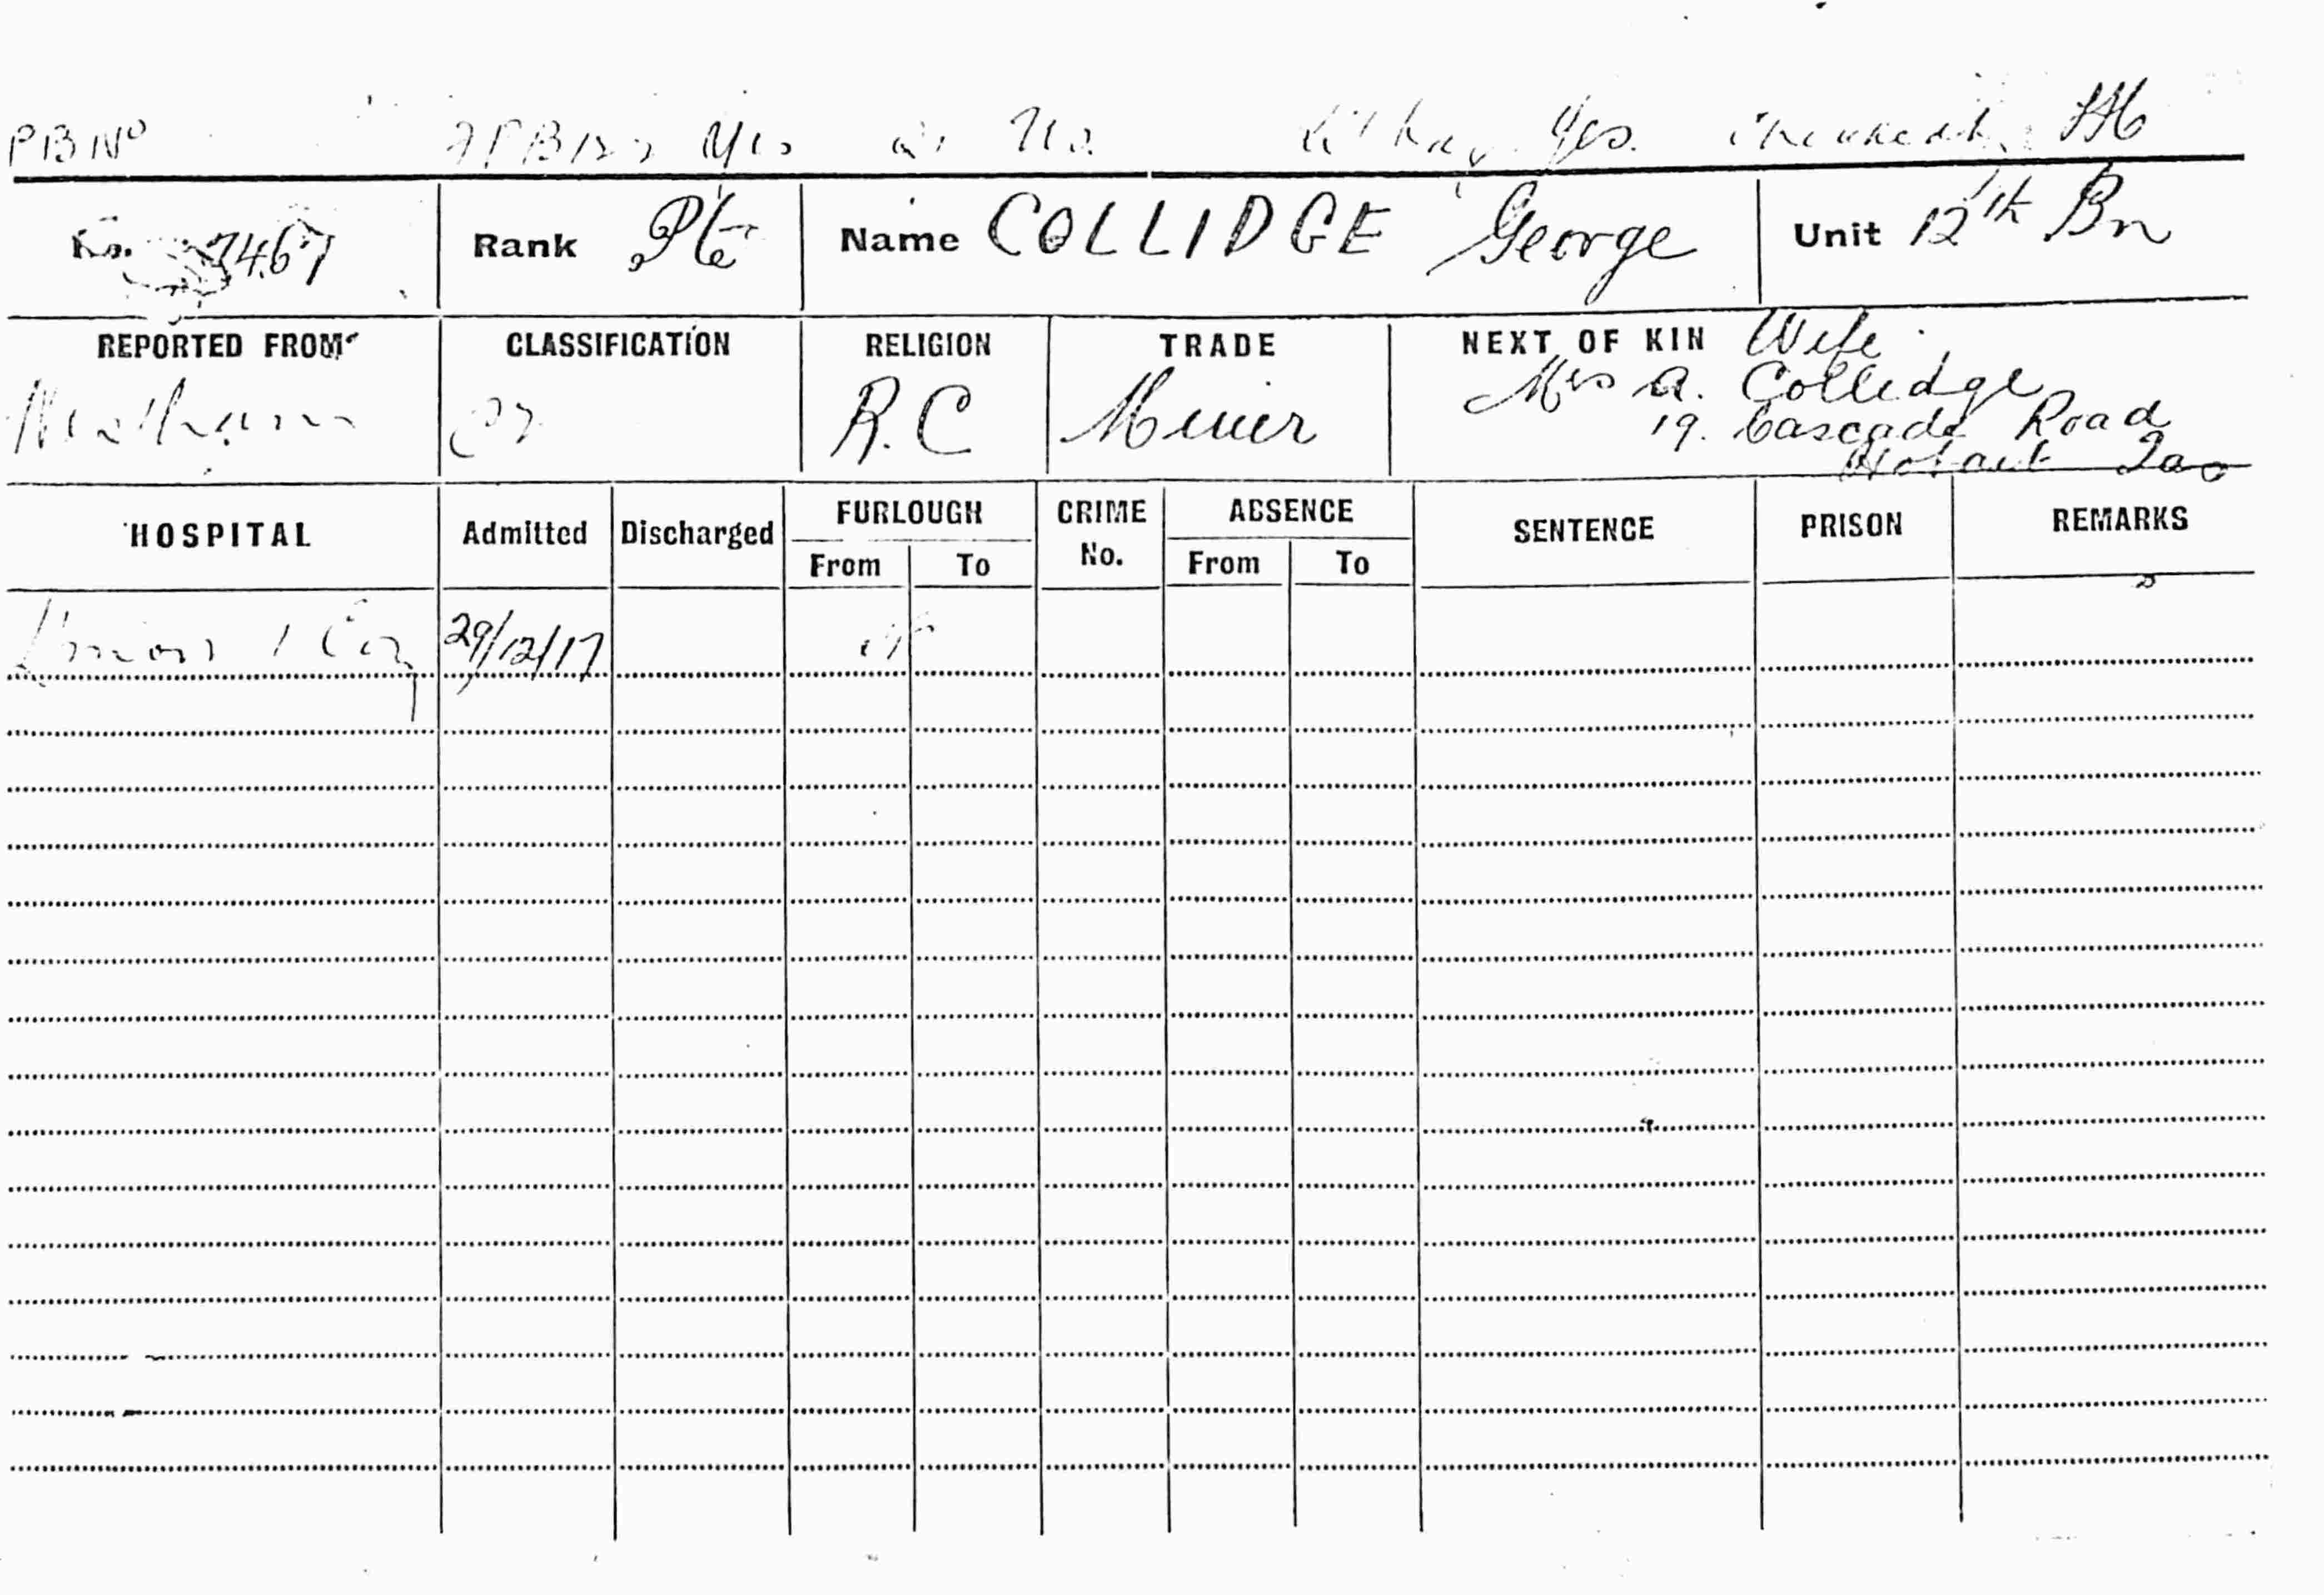 PB No Yes or No. Kit bag. Yes.
No. 7467 Rank Pte Name COLLIDGE George Unit 12th Bn
REPORTED FROM CLASSIFICATION RELIGION TRADE NEXT OF KIN Wife
R.C Miner Mrs A. Collidge
19. Cascade Road
Hobart Tas
HOSPITAL Admitted Discharged FURLOUGH CRIME No. ABSENCE SENTENCE PRISON REMARKS
From To From To
29/12/17